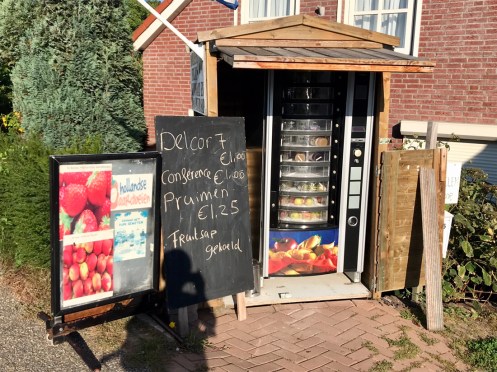 hollandse
aardbeien
Delcor 7
€1.00
Conference €1.00
Pruimen
€1.25
Fruitsap
gekoeld